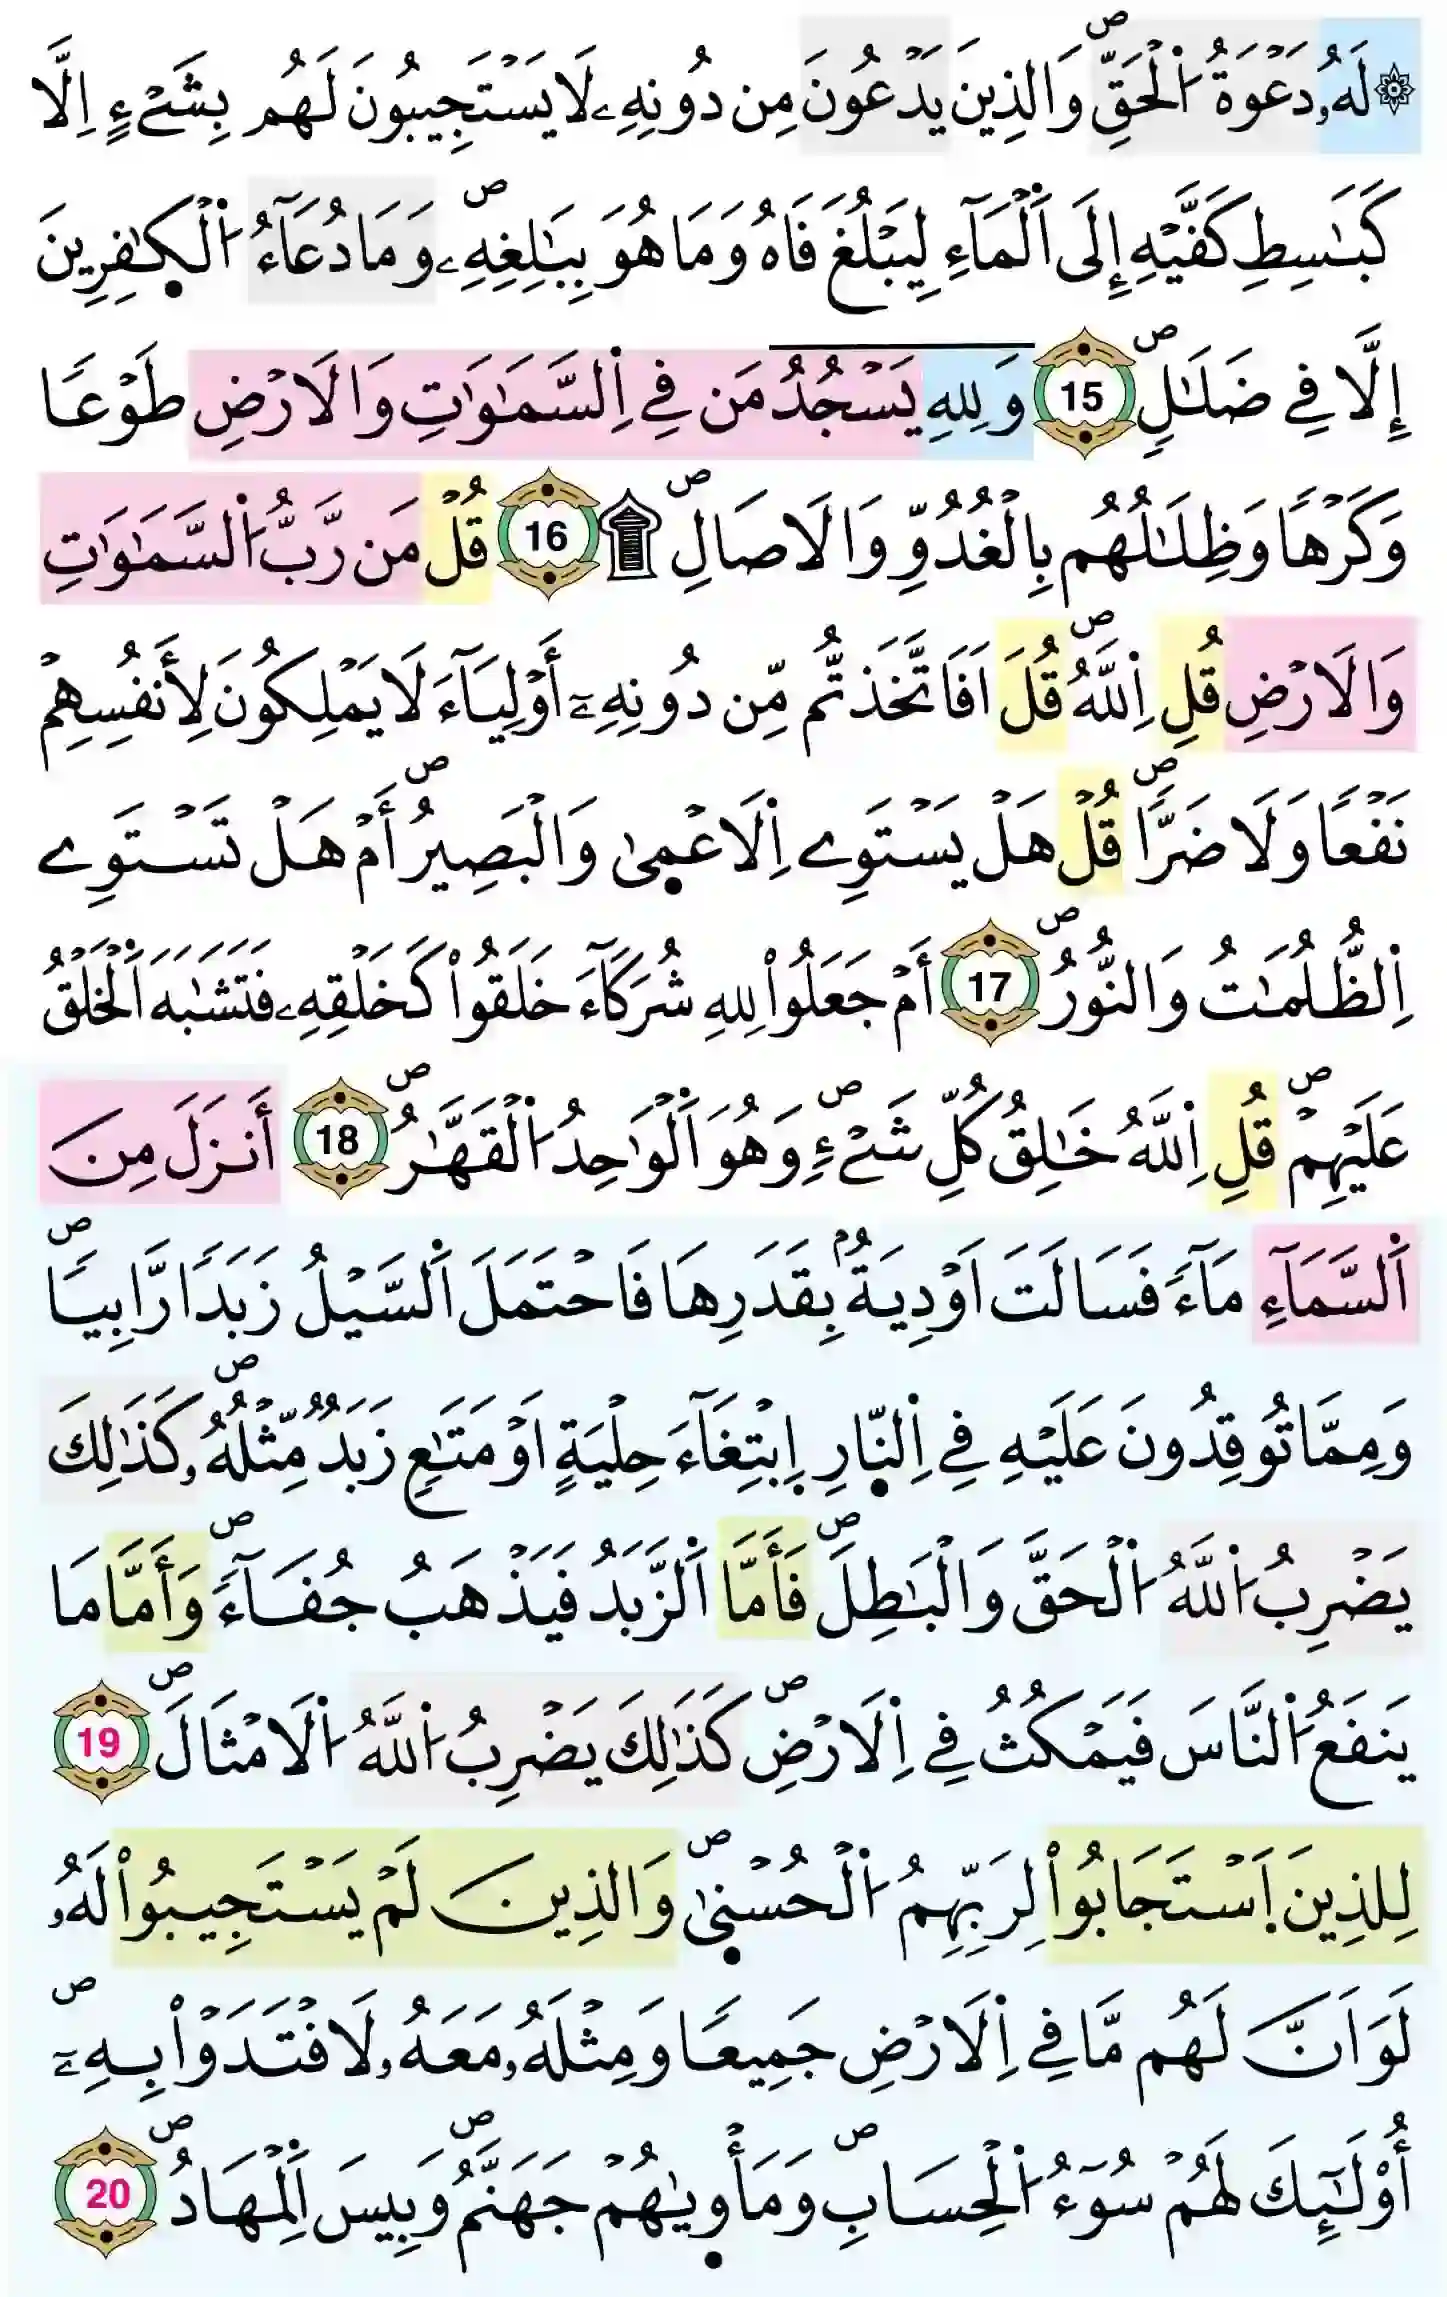 ۞ لَهُۥ دَعْوَةُ اُ۬لْحَقِّۖ وَالذِينَ يَدْعُونَ مِن دُونِهِۦ لَا يَسْتَجِيبُونَ لَهُم بِشَےْءٍ اِلَّا
كَبَٰسِطِ كَفَّيْهِ إِلَى اَ۬لْمَآءِ لِيَبْلُغَ فَاهُ وَمَا هُوَ بِبَٰلِغِهِۦۖ وَمَا دُعَآءُ اُ۬لْكٰ۪فِرِينَ
إِلَّا فِے ضَلَٰلٖۖ 15 وَلِلهِ يَسْجُدُ مَن فِے اِ۬لسَّمَٰوَٰتِ وَالَارْضِ طَوْعاٗ
وَكَرْهاٗ وَظِلَٰلُهُم بِالْغُدُوِّ وَالَاصَالِۖ ۩ 16 قُلْ مَن رَّبُّ اُ۬لسَّمَٰوَٰتِ
وَالَارْضِ قُلِ اِ۬للَّهُۖ قُلَ اَفَاتَّخَذتُّم مِّن دُونِهِۦٓ أَوْلِيَآءَ لَا يَمْلِكُونَ لِأَنفُسِهِمْ
نَفْعاٗ وَلَا ضَرّاٗۖ قُلْ هَلْ يَسْتَوِے اِ۬لَاعْم۪ىٰ وَالْبَصِيرُۖ أَمْ هَلْ تَسْتَوِے
اِ۬لظُّلُمَٰتُ وَالنُّورُۖ 17 أَمْ جَعَلُواْ لِلهِ شُرَكَآءَ خَلَقُواْ كَخَلْقِهِۦ فَتَشَٰبَهَ اَ۬لْخَلْقُ
عَلَيْهِمْۖ قُلِ اِ۬للَّهُ خَٰلِقُ كُلِّ شَےْءٖۖ وَهُوَ اَ۬لْوَٰحِدُ اُ۬لْقَهَّٰرُۖ 18 أَنزَلَ مِنَ
اَ۬لسَّمَآءِ مَآءٗ فَسَالَتَ اَوْدِيَةُۢ بِقَدَرِهَا فَاحْتَمَلَ اَ۬لسَّيْلُ زَبَداٗ رَّابِياٗۖ
وَمِمَّا تُوقِدُونَ عَلَيْهِ فِے اِ۬لنّ۪ارِ اِ۪بْتِغَآءَ حِلْيَةٍ اَوْ مَتَٰعٖ زَبَدٞ مِّثْلُهُۥۖ كَذَٰلِكَ
يَضْرِبُ اُ۬للَّهُ اُ۬لْحَقَّ وَالْبَٰطِلَۖ فَأَمَّا اَ۬لزَّبَدُ فَيَذْهَبُ جُفَآءٗۖ وَأَمَّا مَا
يَنفَعُ اُ۬لنَّاسَ فَيَمْكُثُ فِے اِ۬لَارْضِۖ كَذَٰلِكَ يَضْرِبُ اُ۬للَّهُ اُ۬لَامْثَالَۖ 19
لِلذِينَ اَ۪سْتَجَابُواْ لِرَبِّهِمُ اُ۬لْحُسْن۪ىٰۖ وَالذِينَ لَمْ يَسْتَجِيبُواْ لَهُۥ
لَوَ اَنَّ لَهُم مَّا فِے اِ۬لَارْضِ جَمِيعاٗ وَمِثْلَهُۥ مَعَهُۥ لَافْتَدَوْاْ بِهِۦٓۖ
أُوْلَٰٓئِكَ لَهُمْ سُوٓءُ اُ۬لْحِسَابِۖ وَمَأْو۪يٰهُمْ جَهَنَّمُۖ وَبِيسَ اَ۬لْمِهَادُۖ 20